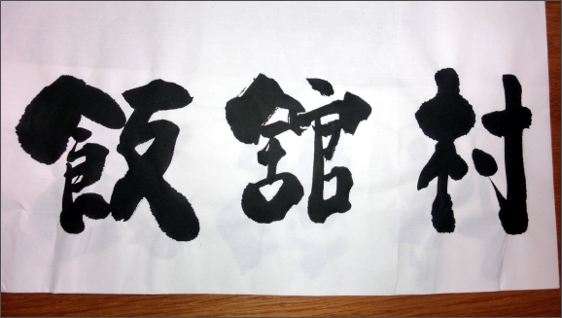 飯舘村